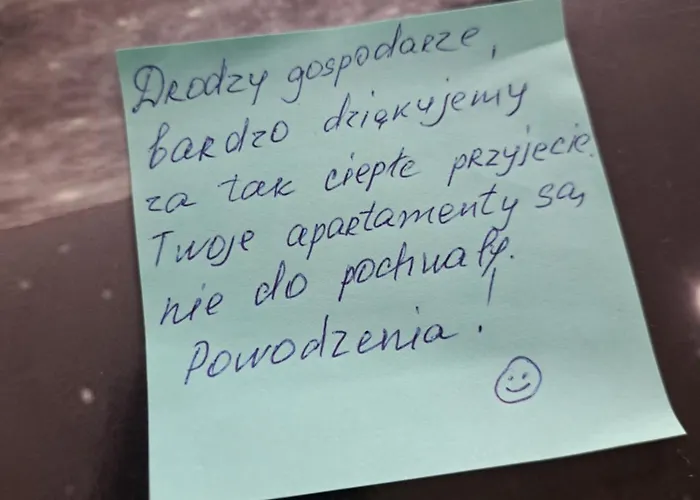 Drodzy gospodarze,
bardzo dziękujemy
za tak ciepłe przyjęcie.
Twoje apartamenty są
nie do pochwały.
Powodzenia!